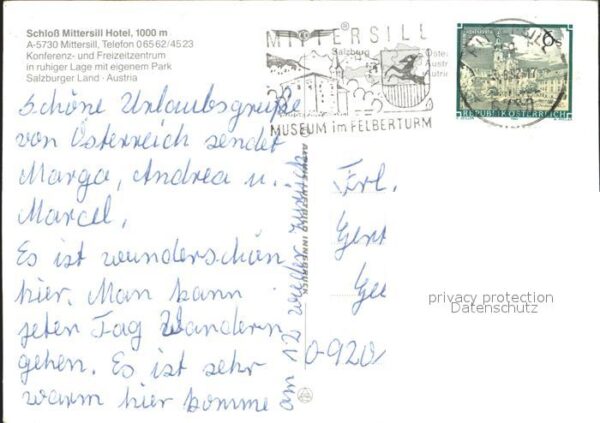 Schloß Mittersill Hotel, 1000 m
A-5730 Mittersill, Telefon 0 65 62/45 23
Konferenz- und Freizeitzentrum
in ruhiger Lage mit eigenem Park
Salzburger Land · Austria
MITTERSILL
Salzburg
MUSEUM im FELBERTURM
6
REPUBLIK ÖSTERREICH
Schöne Urlaubsgrüße
von Österreich sendet
Marga, Andrea u.
Marcel,
Es ist wunderschön
hier. Man kann
jeten Tag Wandern
gehen. Es ist sehr
warm hier komme
am 12 wieder zurück
INNSBRUCK
Frl.
Gert
Ge
0-920
privacy protection
Datenschutz